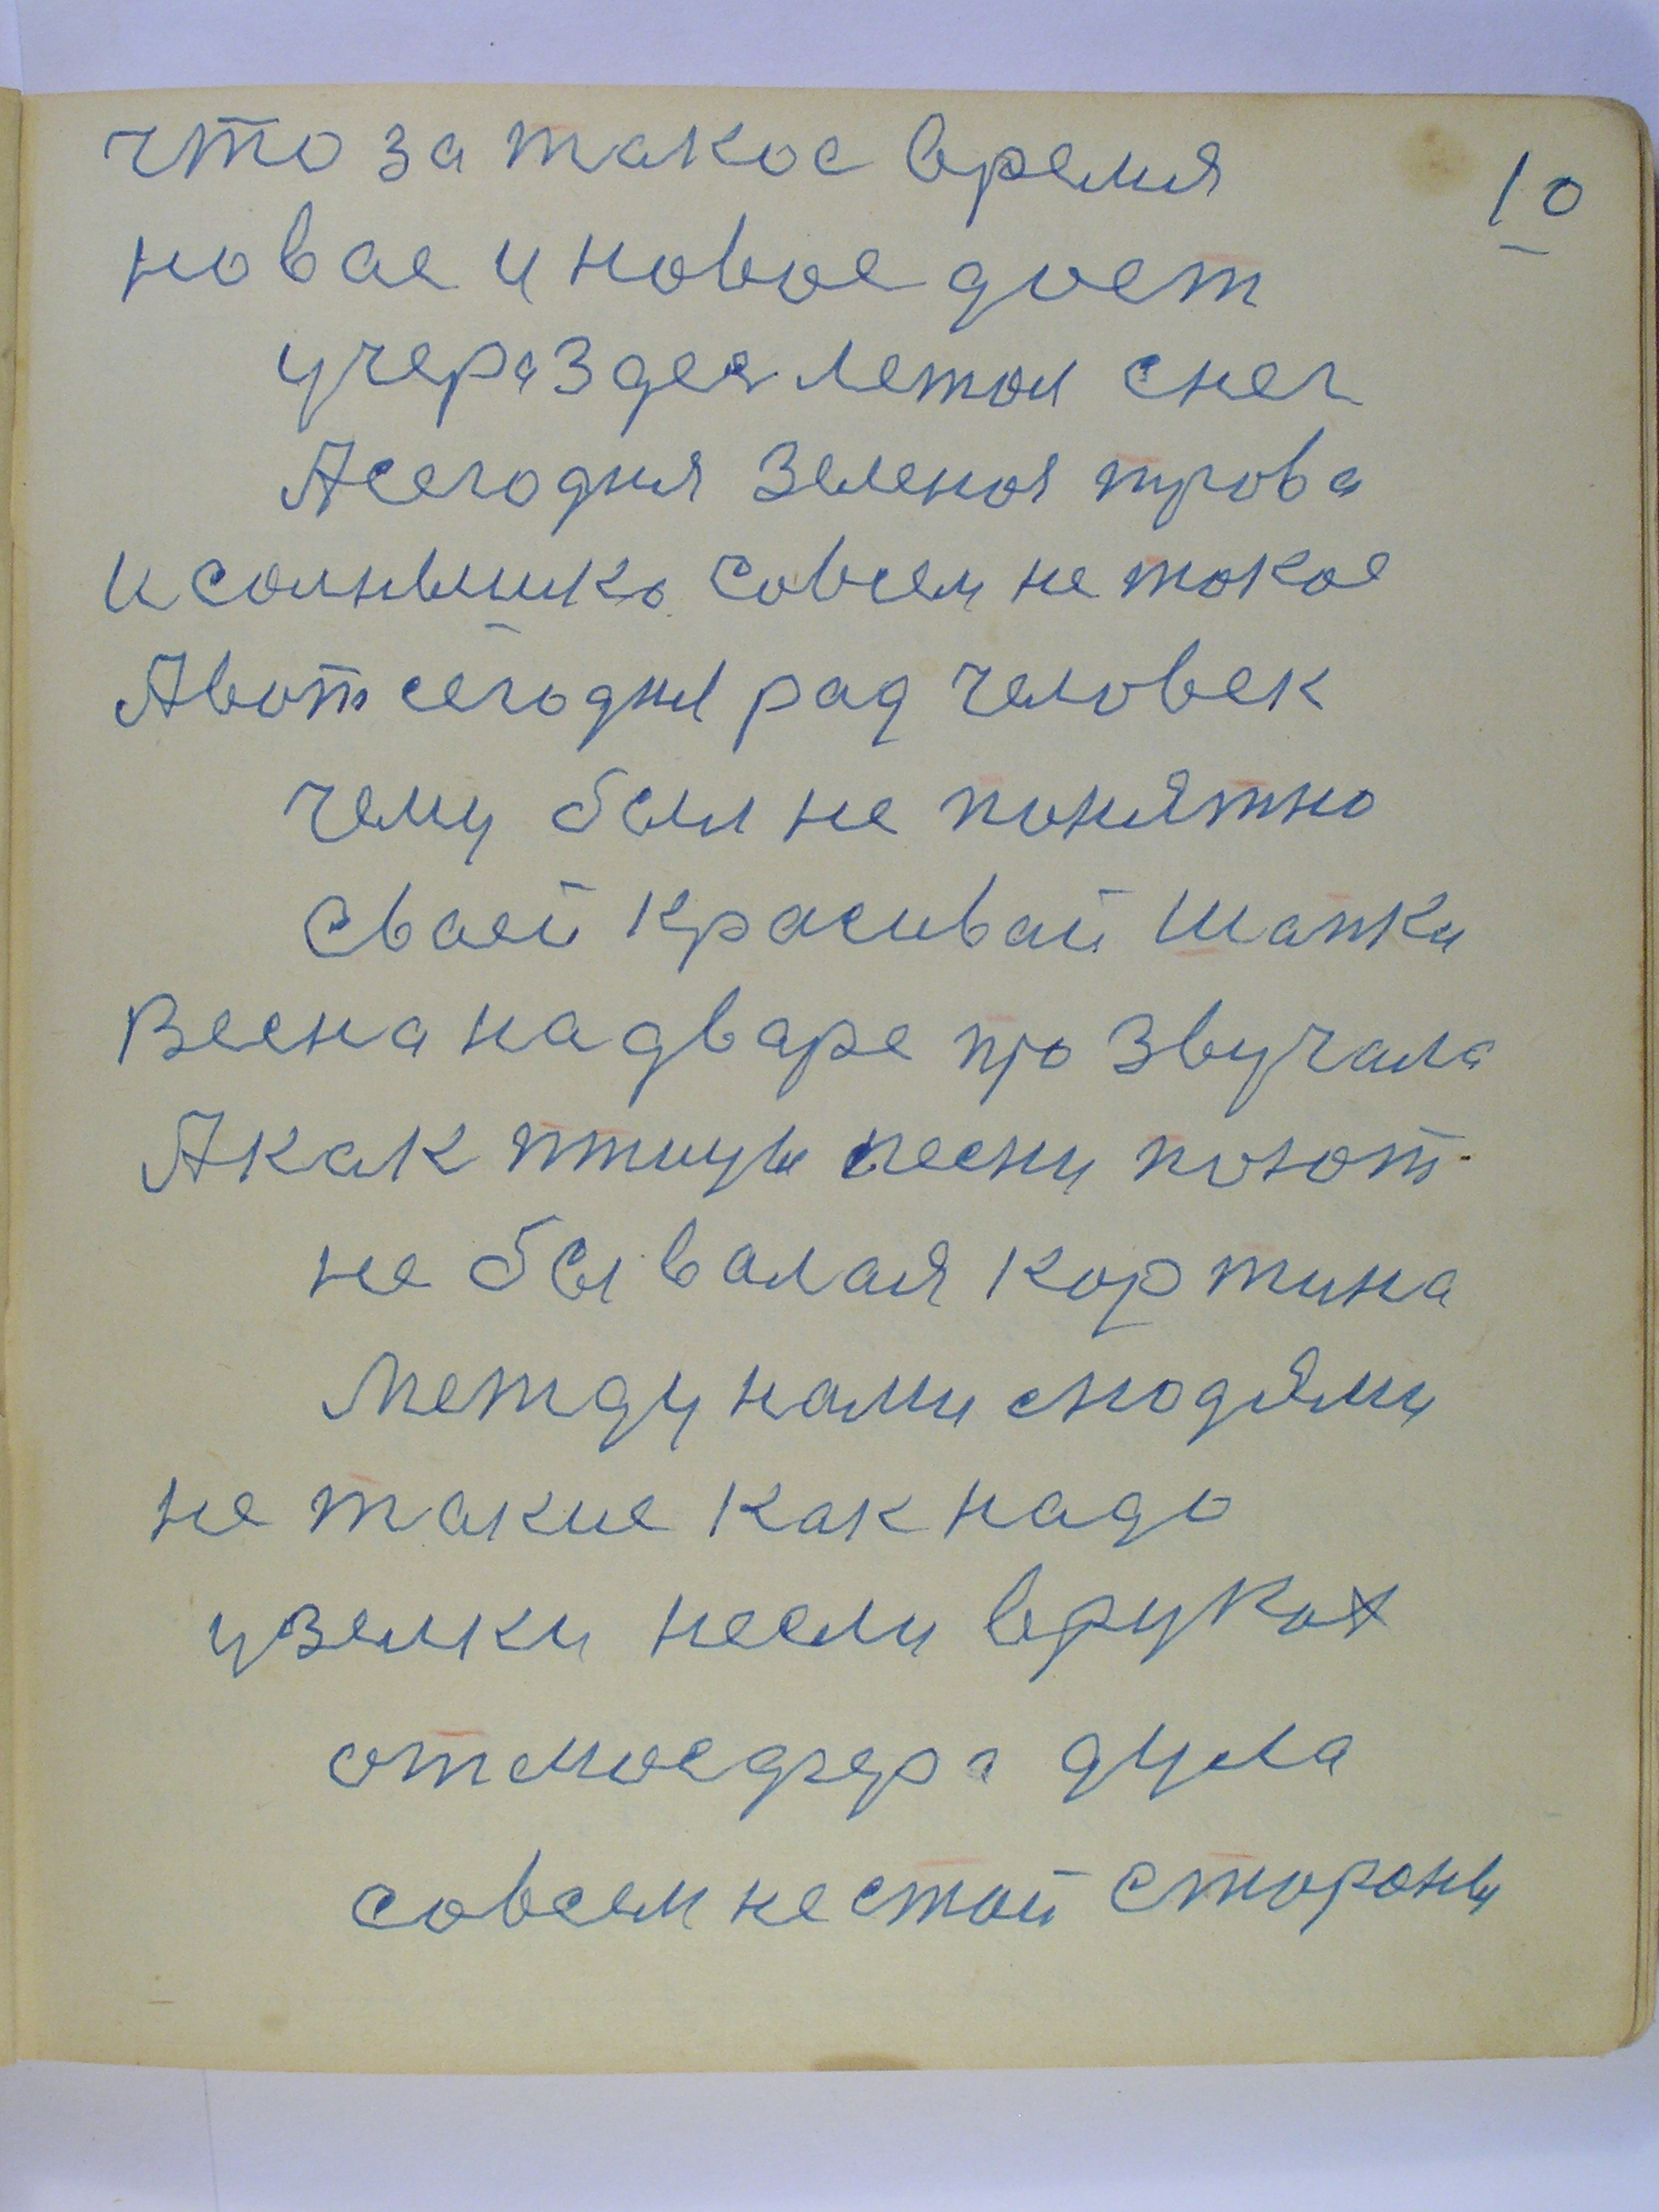 что за такое время
10
новае и новое дает
учера здея летал снег
А сегодня зеленоя трова
и солнышко совсем не токое
А вот сегодня рад человек
чему был не понятно
сваей красивай шапки
Весна на дваре про звучала
А как птицы песни поют.
не бывалая кортина
Метду нами людями
не такие как надо
узелки несли в руках
отмосфера дула
совсем не стой стороны